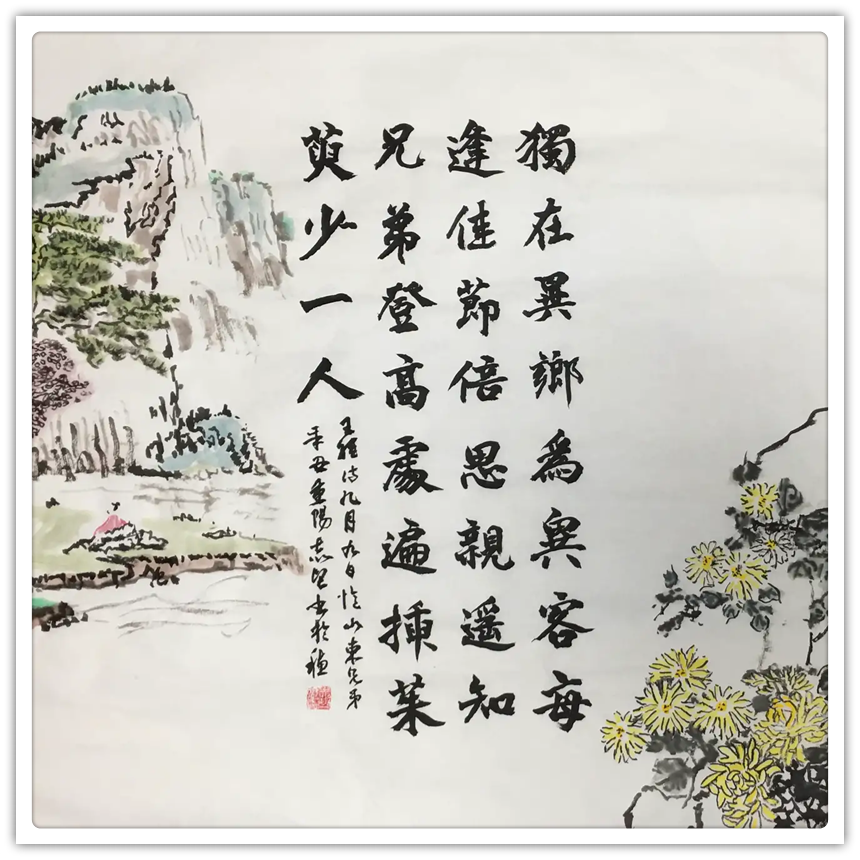 獨在異鄉為異客每
逢佳節倍思親遥知
兄弟登高處遍插茱
萸少一人
王維诗九月九日憶山東兄弟
辛丑重陽志堅书於穗